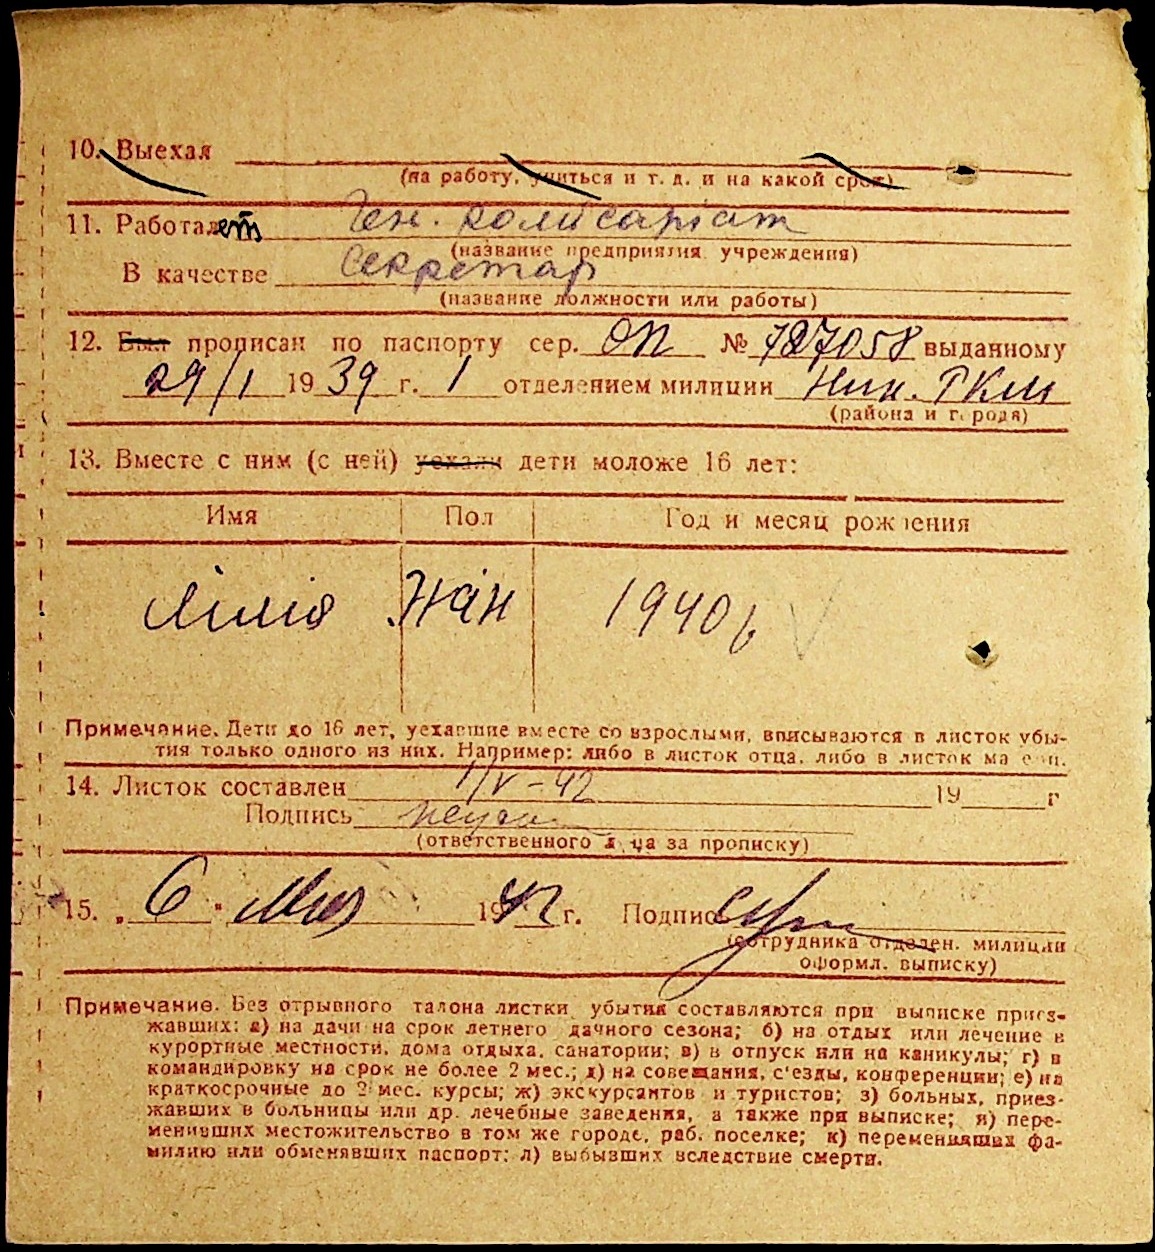 10. Выехал
(на работу, учиться и т. д. и на какой срок)
11. Работает Ген. комісаріат
(название предприятия, учреждения)
В качестве Секретар
(название должности или работы)
12. Был прописан по паспорту сер. ОП № 727058 выданному
29/I 1939 г. 1 отделением милиции Ник. РКМ
(района и города)
13. Вместе с ним (с ней) уехали дети моложе 16 лет:
Имя Пол Год и месяц рождения
Лілія Жін 1940
Примечание. Дети до 16 лет, уехавшие вместе со взрослыми, вписываются в листок убы-
тия только одного из них. Например: либо в листок отца, либо в листок матери.
14. Листок составлен 1/V-42 19 г
Подпись
(ответственного лица за прописку)
15. „6" Мая 1942 г. Подпись
(сотрудника отделен. милиции
оформл. выписку)
Примечание. Без отрывного талона листки убытия составляются при выписке приез-
жавших: а) на дачи на срок летнего дачного сезона; б) на отдых или лечение в
курортные местности, дома отдыха, санатории; в) в отпуск или на каникулы; г) в
командировку на срок не более 2 мес.; д) на совещания, с'езды, конференции; е) на
краткосрочные до 2 мес. курсы; ж) экскурсантов и туристов; з) больных, приез-
жавших в больницы или др. лечебные заведения, а также при выписке; и) пере-
менивших местожительство в том же городе, раб. поселке; к) переменивших фа-
милию или обменявших паспорт; л) выбывших вследствие смерти.